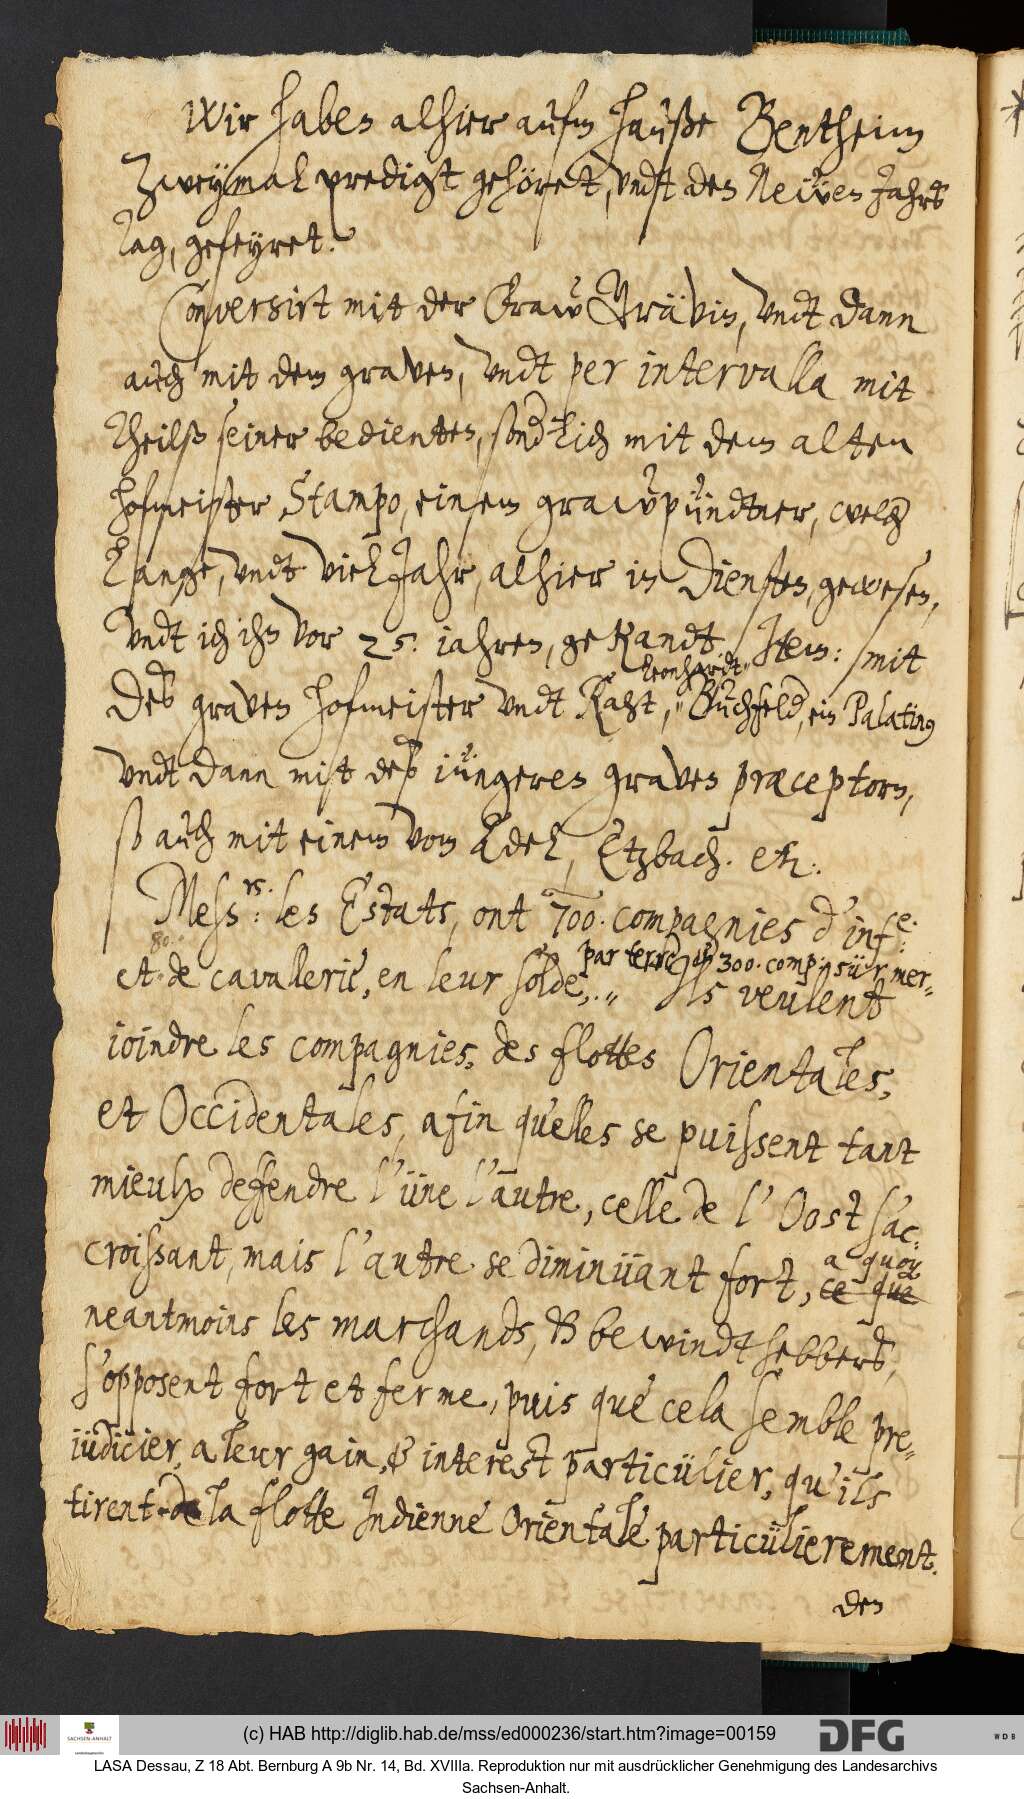 Wir haben alhier aufm hauße Bentheim
Zweymal predigt gehöret, undt den Neüen Jahrs
Tag, gefeyret.
Conversirt mit der Fraw Grävin, undt dann
auch mit dem graven, undt per intervalla mit
theilß seiner bedienten, sonderlich mit dem alten
hofmeister Stampo, einem grawpündtner, welch
lange, undt viel Jahr, alhier in Diensten, gewesen,
undt ich ihn vor 25. iahren, gekandt. Item: mit
Leonhardt
Deß graven hofmeister undt Raht, Buchfeldt, ein Palatinus
undt dann mit deß iüngeren graven præceptorn,
so auch mit einem vom Adel, Etzbach. etc.
Mess:rs. les Estats, ont 700. compagnies d'infe:
80.
et de cavallerie, en leur solde,
par terre, et 300. comp: sür mer
Ils veulent
ioindre les compagnies, des flottes Orientales,
et Occidentales, afin qu'elles se puissent tant
mieulx deffendre l'üne l'autre, celle de l'Oost s'ac-
croissant, mais l'autre se diminüant fort,
a quoy
ce que
neantmoins les marchands, & bewindthebbers,
s'opposent fort et ferme, puis que cela semble pre-
iüdicier, a leur gain, & interest particülier, qu'ils
tirent de la flotte Indienne Orientale particülierement.
den
(c) HAB http://diglib.hab.de/mss/ed000236/start.htm?image=00159
DFG
WDB
SACHSEN-ANHALT
LASA Dessau, Z 18 Abt. Bernburg A 9b Nr. 14, Bd. XVIIIa. Reproduktion nur mit ausdrücklicher Genehmigung des Landesarchivs
Sachsen-Anhalt.